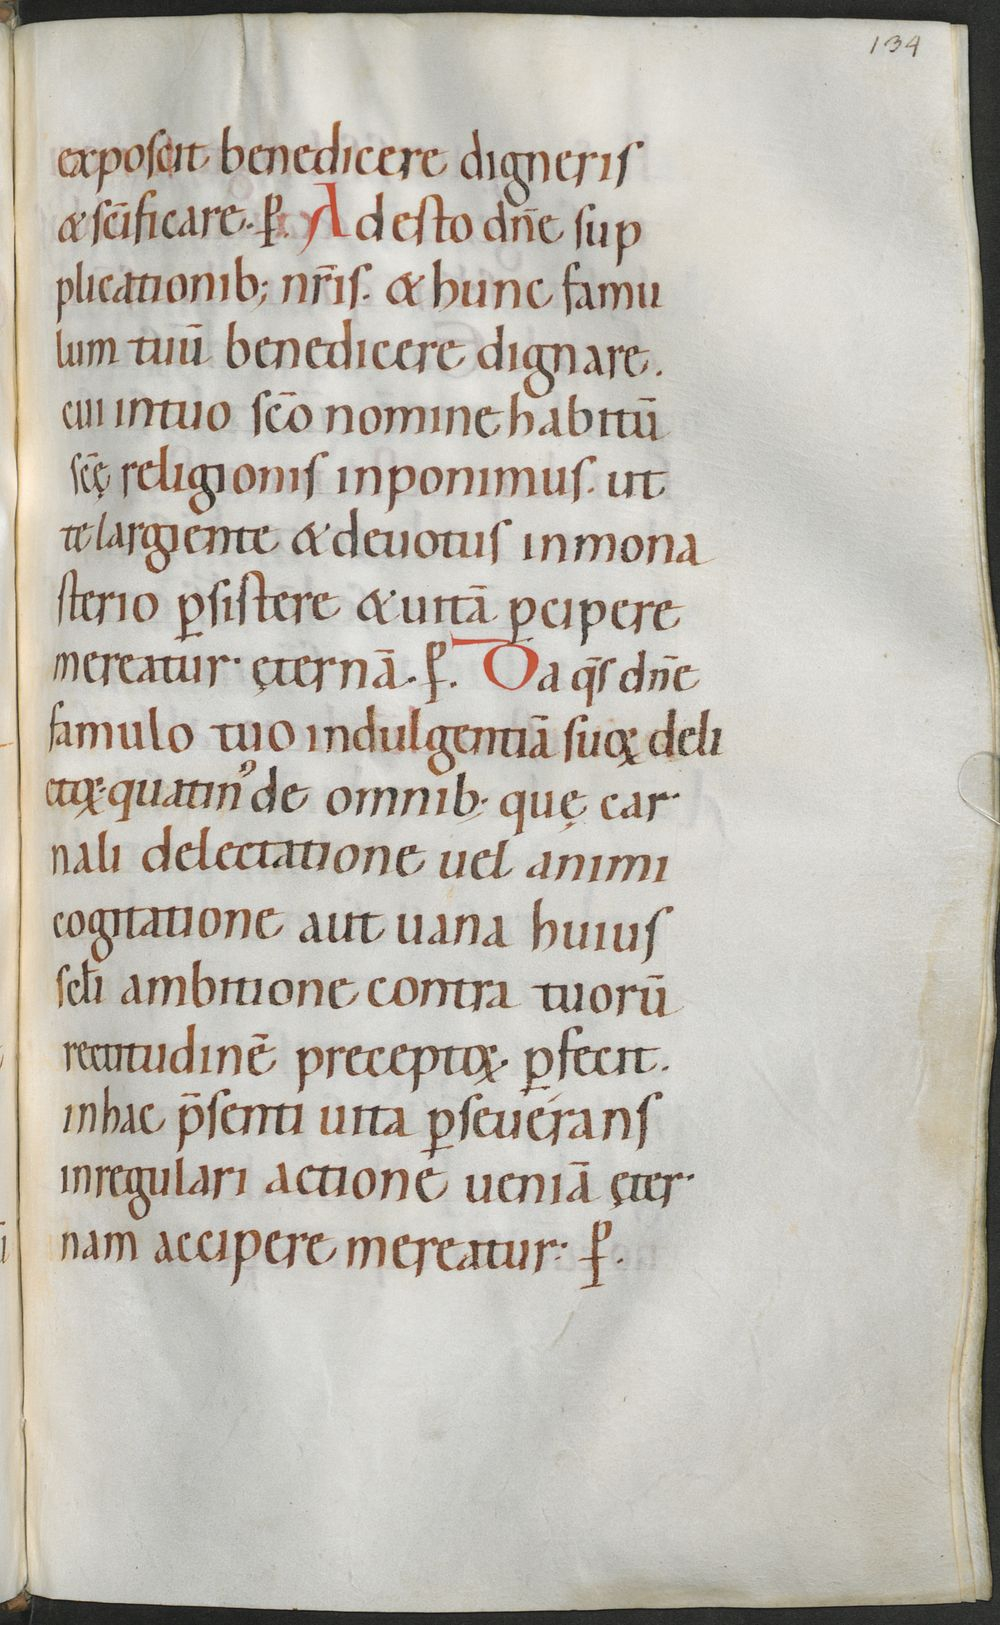 134
exposcit benedicere digneris
& sc̄ificare. ꝑ. Adesto dn̄e sup
plicationib; nr̄is. & hunc famu
lum tuū benedicere dignare.
cui in tuo sc̄o nomine habitū
sc̄ę religionis inponimus. ut
te largiente & deuotus in mona
sterio ꝑsistere & uitā ꝑcipere
mereatur· ęternā. ꝑ. Da qs̄ dn̄e
famulo tuo indulgentiā suoꝝ deli
ctoꝝ. quatinꝰ de omnib; quę car·
nali delectatione uel animi
cogitatione aut uana huius
sc̄li ambitione contra tuorū
rectitudinē preceptoꝝ. ꝑfecit.
in hac p̄senti uita ꝑseuerans
in regulari actione ueniā ęter·
nam accipere mereatur: ꝑ.